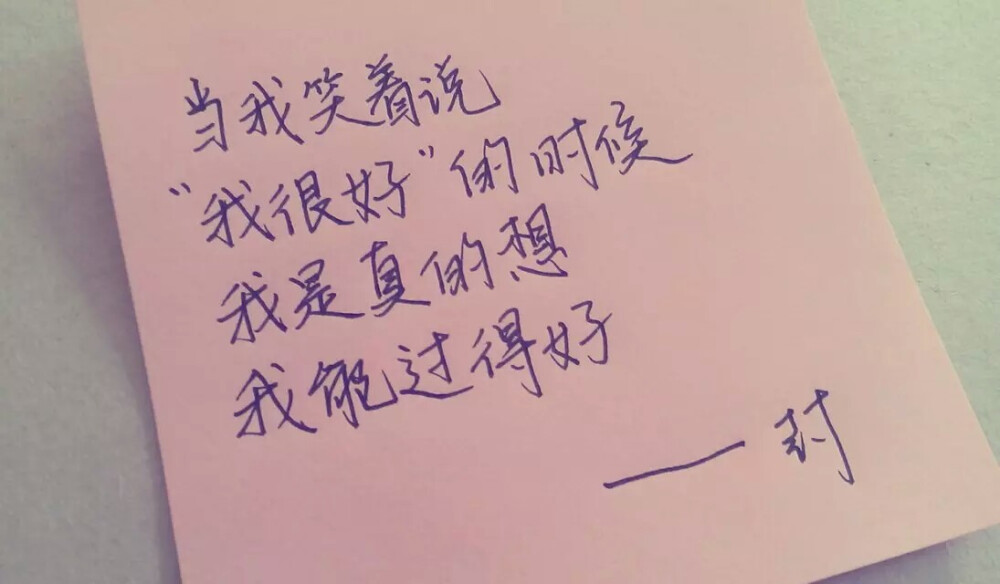 当我笑着说
“我很好”的时候
我是真的想
我能过得好
——封